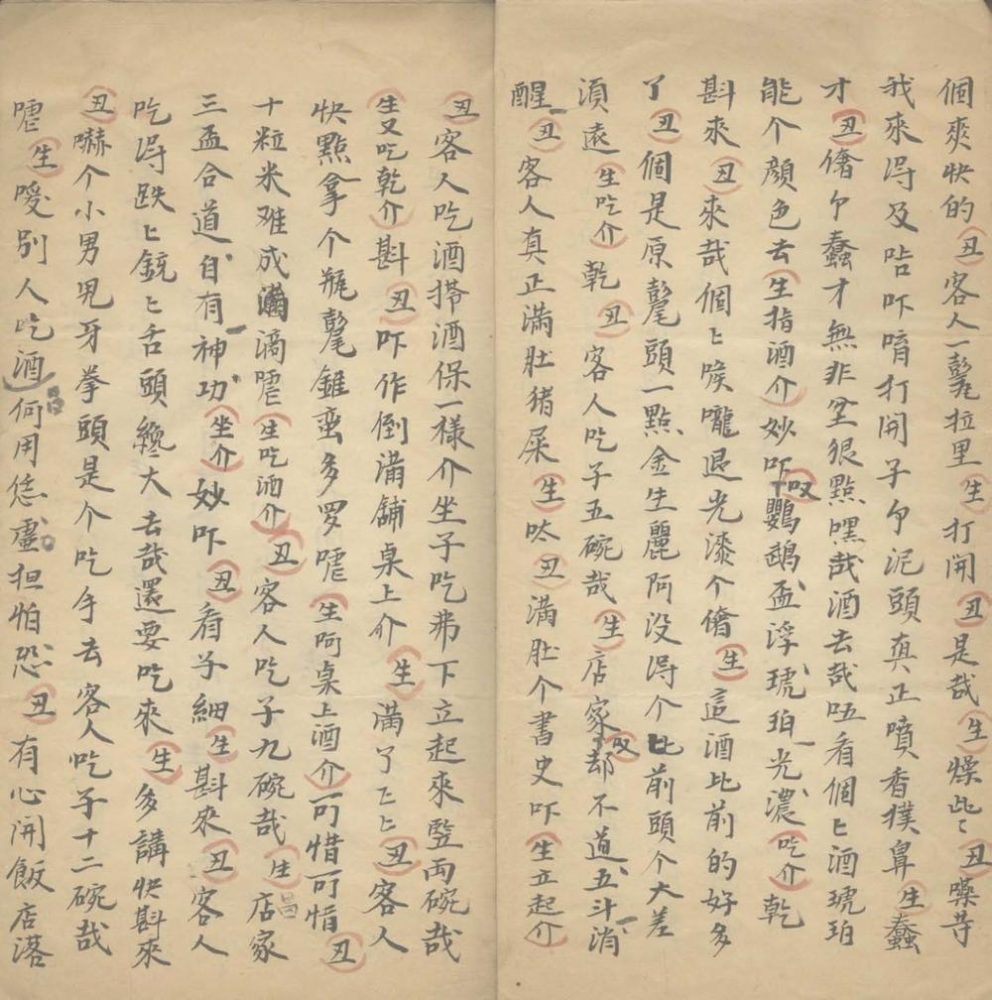 個爽快的丑客人一髦拉里生打開丑是哉生燥些〻丑噪寺
我來淂及咕吓唷打開子个泥頭真正噴香撲鼻生蠢
才丑儈个蠢才無非坌狠點嘿哉酒去哉𠵽看個〻酒琥珀
能个顔色去生指酒介妙吓鸚鵡盃浮琥珀光濃吃介乾
斟來丑來哉個〻喉嚨退光漆个儈生這酒比前的好多
了丑個是原髦頭一點金生麗阿没淂个比前頭个大差
湏遠生吃介乾丑客人吃子五碗哉生店家却不道五斗消
醒丑客人真正滿肚猪屎生呔丑滿肚个書史吓生立起介
丑客人吃酒搭酒保一樣介坐子吃弗下立起來竪両碗哉
生又吃乾介斟丑吓作倒滿舖桌上介生滿了〻〻丑客人
快點拿个瓶髦錐蛮多罗嘘生阿桌上酒介可惜可惜丑
十粒米难成滴嘘生吃酒介丑客人吃子九碗哉生店家
三盃合道自有神功坐介妙吓丑看子細生斟來丑客人
吃淂跌〻銃〻舌頭纔大去哉還要吃來生多講快斟來
丑嚇个小男児牙拳頭是个吃手去客人吃子十二碗哉
嘘生噯别人吃酒何用恁𢖍担怕恐丑有心開飯店落